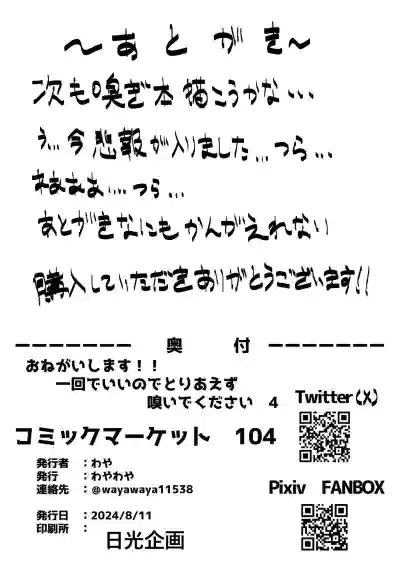 ～あとがき～
次も嗅ぎ本描こうかな…
う…今悲報が入りました…つら…
ねぁぁぁ…つら…
あとがきなにもかんがえれない
購入していただきありがとうございます!!
ーーーーーーー 奥 付 ーーーーーーー
おねがいします!!
一回でいいのでとりあえず
嗅いでください 4
コミックマーケット 104
発行者 :わや
発行 :わやわや
連絡先 :@wayawaya11538
発行日 :2024/8/11
印刷所 :日光企画
Twitter(X)
Pixiv FANBOX